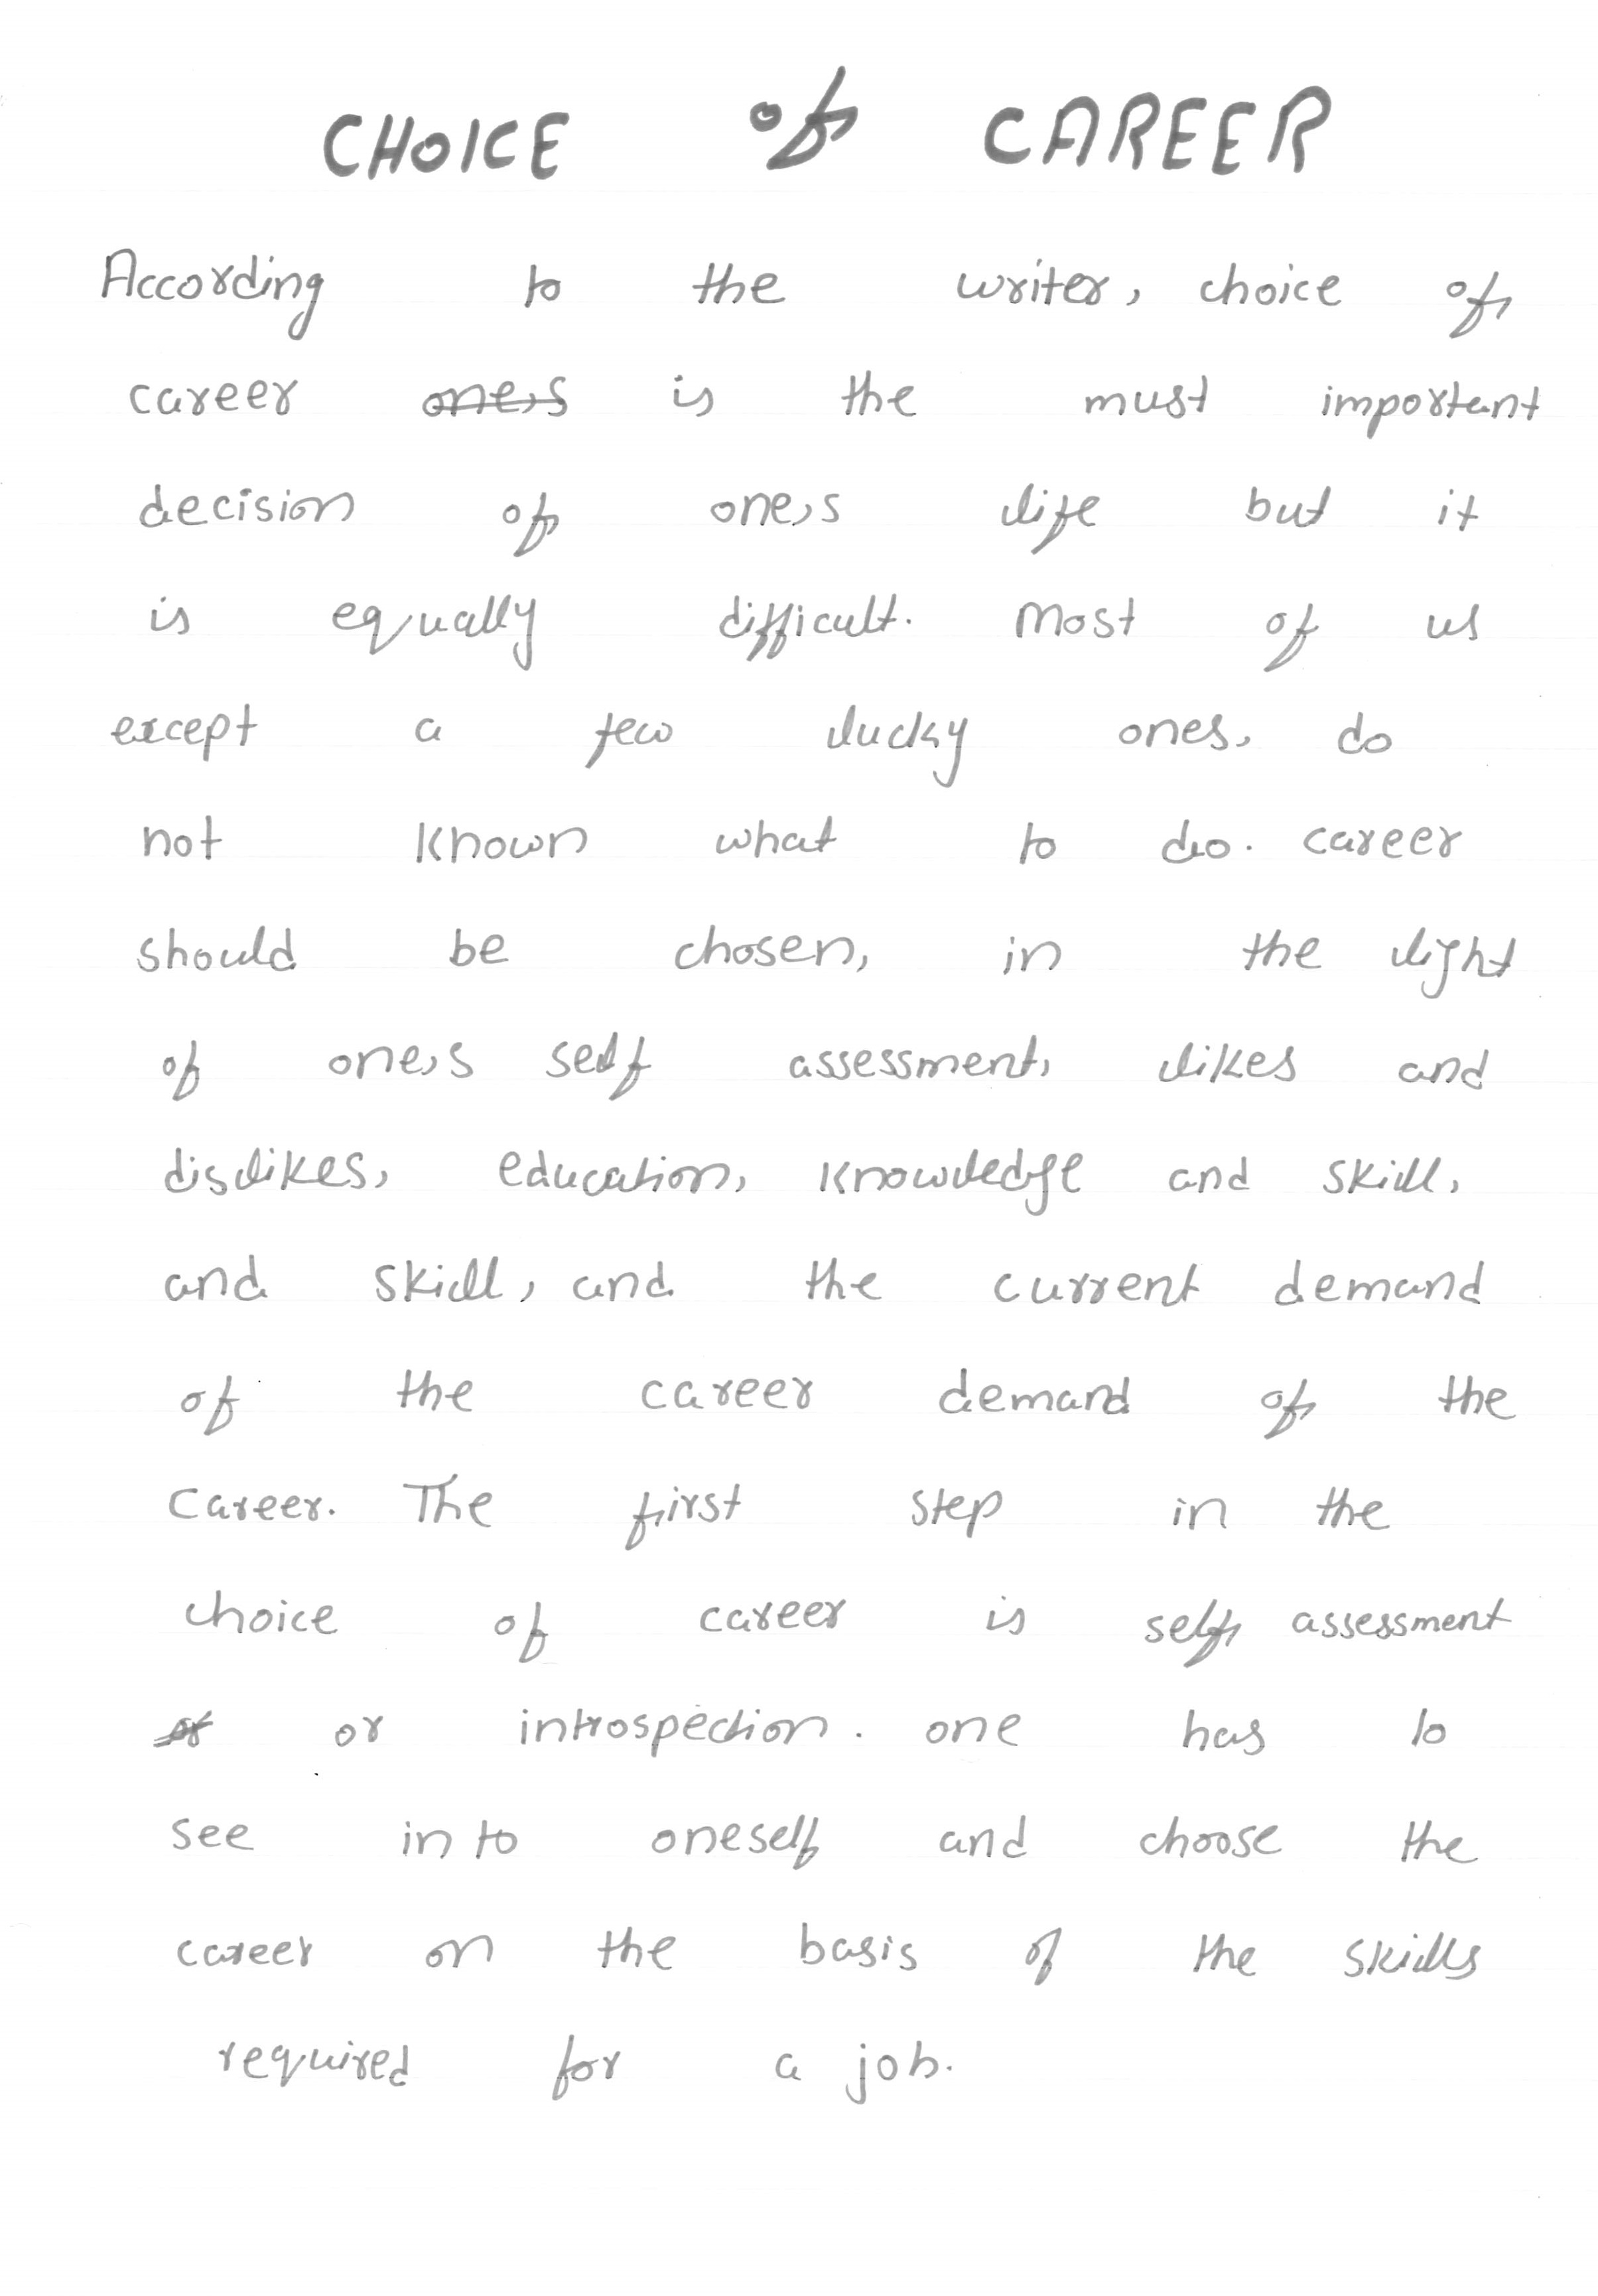 CHOICE of CAREER
According to the writer, choice of
career one,s is the must important
decision of one,s life but it
is equally difficult. Most of us
except a few lucky ones, do
not known what to do. career
should be chosen, in the light
of one,s self assessment, likes and
dislikes, education, knowledge and skill,
and skill, and the current demand
of the career demand of the
career. The first step in the
choice of career is self assessment
or introspection. one has to
see in to oneself and choose the
career on the basis of the skills
required for a job.